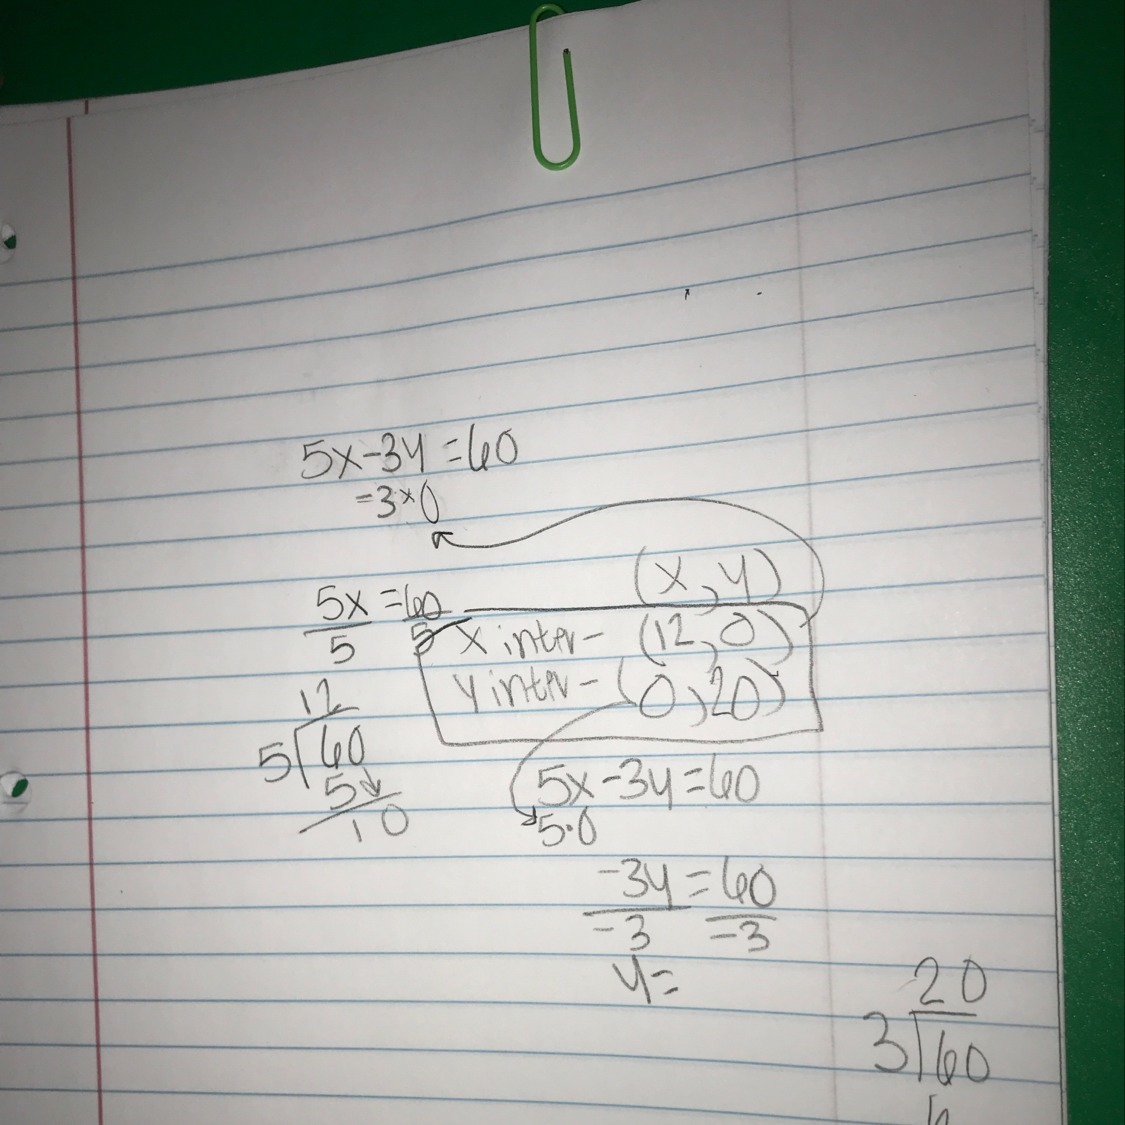 5x-3y=60
-3×0
(x,y)
5x=60
5 5
x inter- (12,0)
y inter- (0,20)
12
5 60
5
10
5x-3y=60
5·0
-3y=60
-3 -3
y=
20
3 60